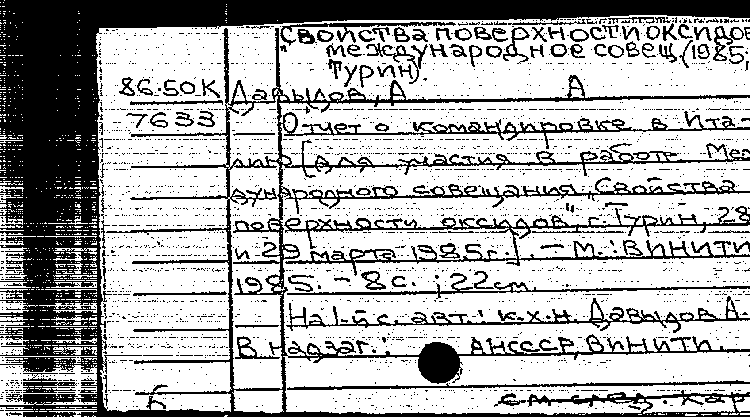 "Свойства поверхности оксидов
международное совещ. (1985,
Турин).
86.50К Давыдов, А А
7633 Отчет о командировке в Ита-
лию [для участия в работе Меж
дународного совещания „Свойства
поверхности оксидов", г. Турин, 28
и 29 марта 1985г.]. – М.: ВИНИТИ
1985. – 8 с. ; 22 см.
На 1-й с. авт.: к.х.н. Давыдов А.
В надзаг.: АН СССР, ВИНИТИ.
Б см. след. кар